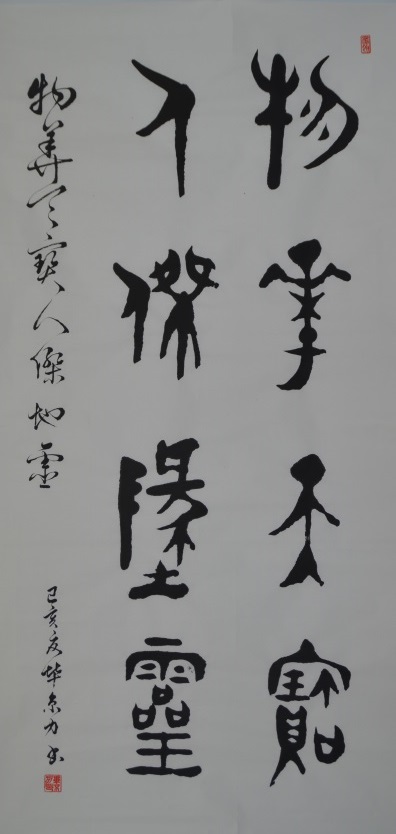 物華天寶
人傑地靈
物華天寶人傑地靈
己亥夏